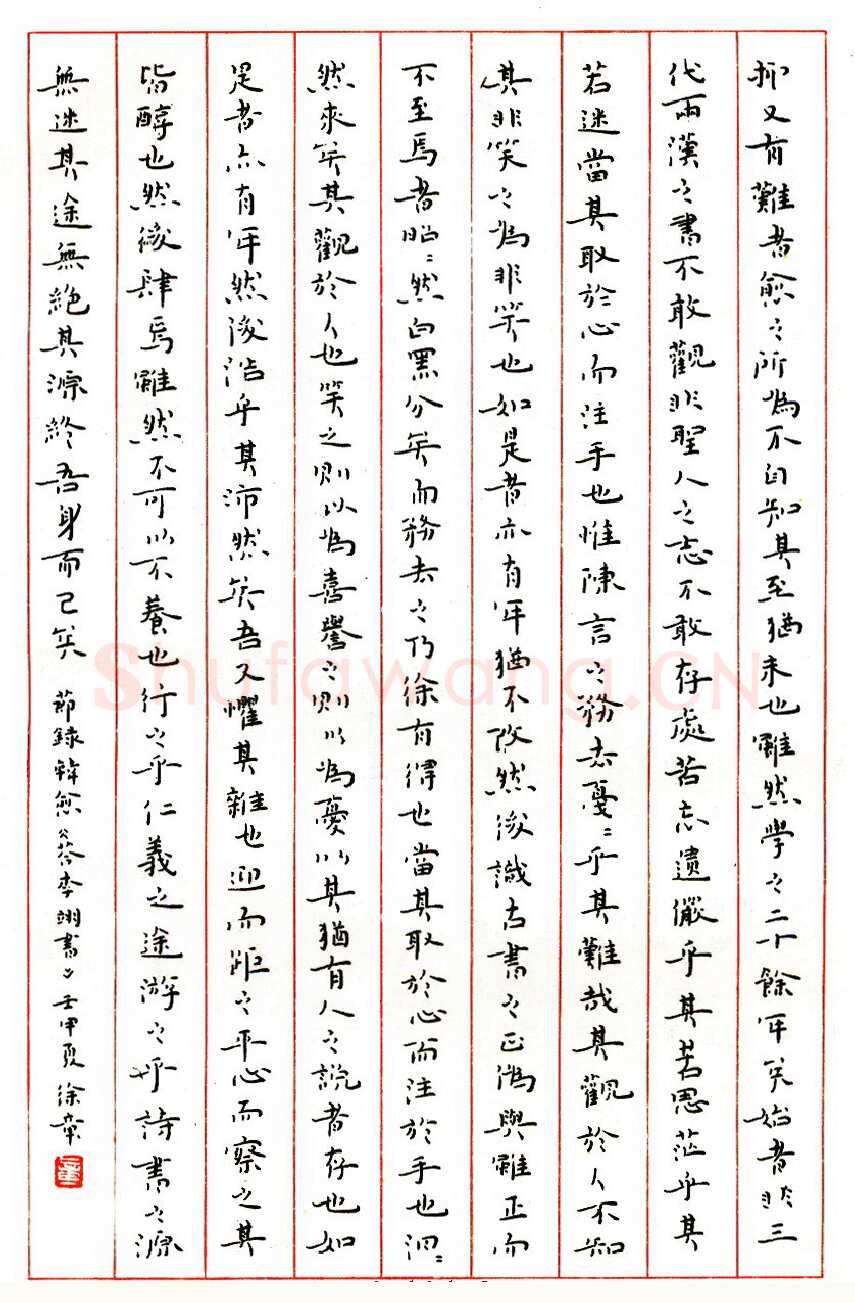 抑又有難者愈之所為不自知其至猶未也雖然學之二十餘年矣始者非三
代兩漢之書不敢觀非聖人之志不敢存處若忘遺儼乎其若思茫乎其
若迷當其取於心而注手也惟陳言之務去戛〻乎其難哉其觀於人不知
其非笑之為非笑也如是者亦有年猶不改然後識古書之正偽與雖正而
不至焉者昭〻然白黑分矣而務去之乃徐有得也當其取於心而注於手也汩〻
然來矣其觀於人也笑之則以為喜譽之則以為憂以其猶有人之說者存也如
是者亦有年然後浩乎其沛然矣吾又懼其雜也迎而距之平心而察之其
皆醇也然後肆焉雖然不可以不養也行之乎仁義之途游之乎詩書之源
無迷其途無絕其源終吾身而已矣 節錄韓愈《答李翊書》壬申夏徐章
Shufawang.CN